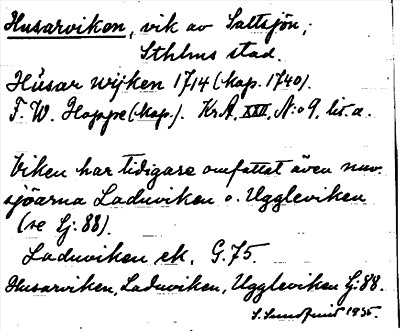 Husarviken, vik av Saltsjön,
Sthlms stad.
Hüsar wijken 1714 (kop. 1740).
F. W. Hoppe (kop.). KrA, XXII, N:o 9, lit. a.
Viken har tidigare omfattat även nuv.
sjöarna Laduviken o. Uggleviken
(se Lj: 88).
Laduviken ek. G. 75.
Husarviken, Laduviken, Uggleviken Lj: 88.
S. Sundquist 1935.